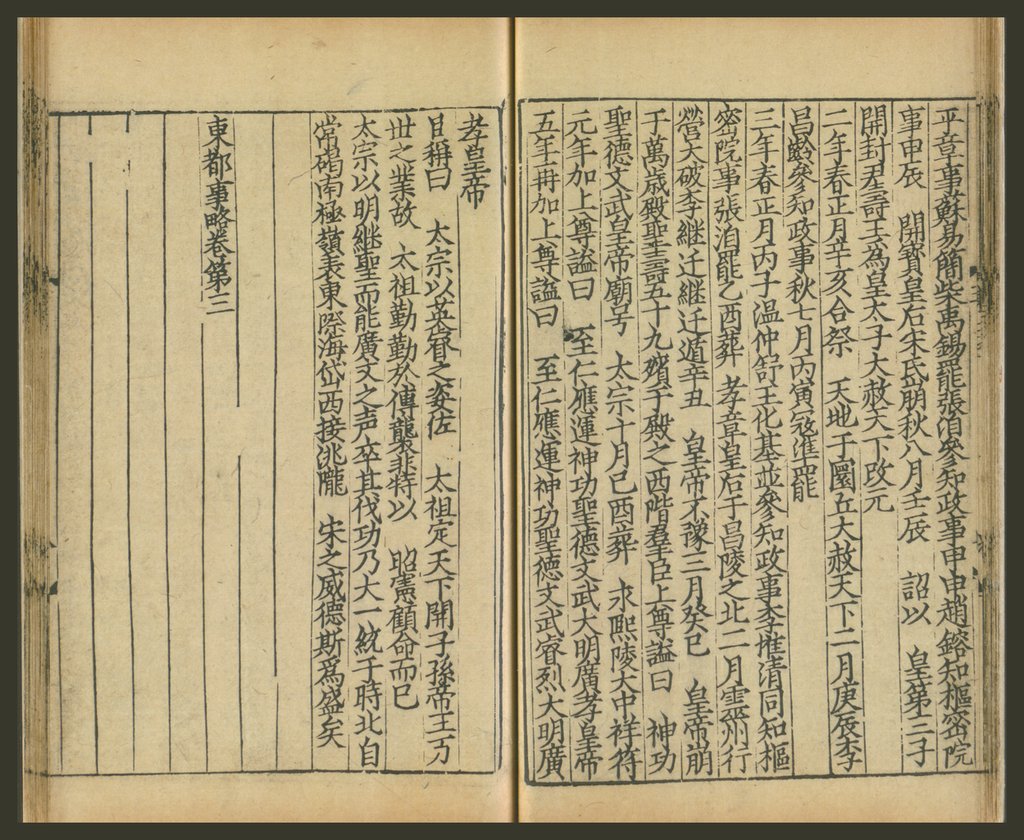 平章事蘇易簡柴禹錫罷張洎參知政事甲申趙鎔知樞密院
事甲辰 開寳皇后宋氏崩秋八月壬辰 詔以 皇第三子
開封尹壽王為皇太子大赦天下改元
二年春正月辛亥合祭 天地于圜丘大赦天下二月庚辰李
昌齡參知政事秋七月丙寅冦準罷
三年春正月丙子温仲舒王化基並參知政事李惟清同知樞
密院事張洎罷乙酉葬 孝章皇后于昌陵之北二月霊州行
營大破李継迁継迁遁辛丑 皇帝不豫三月癸巳 皇帝崩
于萬歳殿聖壽五十九殯于殿之西階羣臣上尊謚曰 神功
聖徳文武皇帝廟号 太宗十月己酉葬 永熙陵大中祥符
元年加上尊謚曰 至仁應運神功聖徳文武大明廣孝皇帝
五年再加上尊謚曰 至仁應運神功聖徳文武睿烈大明廣
孝皇帝
臣稱曰 太宗以英睿之姿佐 太祖定天下開子孫帝王万
世之業故 太祖勤勤於傳襲非特以 昭憲顧命而已
太宗以明継聖而能廣文之声卒其伐功乃大一統于時北自
常碣南極嶺表東際海岱西接洮隴 宋之威德斯為盛矣
東都事略卷第三